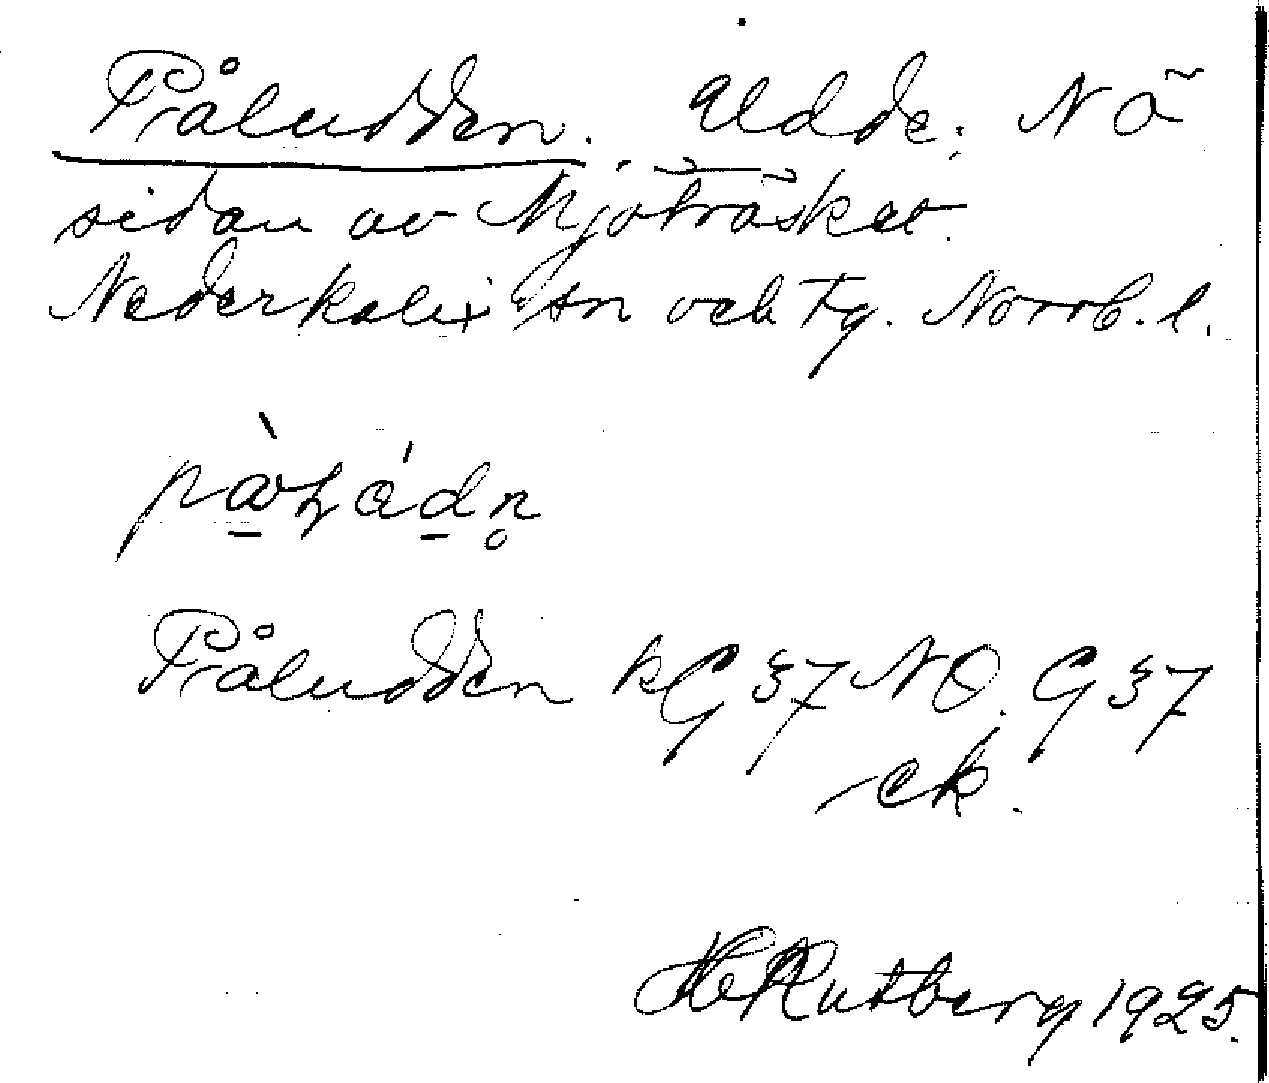 Påludden. Udde. N ö
sidan av Mjöträsket.
Nederkalix sn och tg. Norrb. l.
Påludden kG 37 NO. G 37
ek.
H Rutberg 1925.